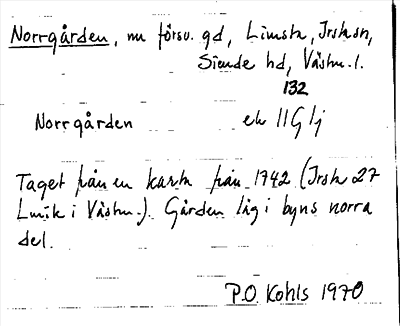 Norrgården, nu försv. gd, Limsta, Irsta sn,
Siende hd, Västm. l.
132
Norrgården ek 11G 1j
Taget från en karta från 1742 (Irsta 27
Lmk i Västm.). Gården låg i byns norra
del.
P.O. Kohls 1970